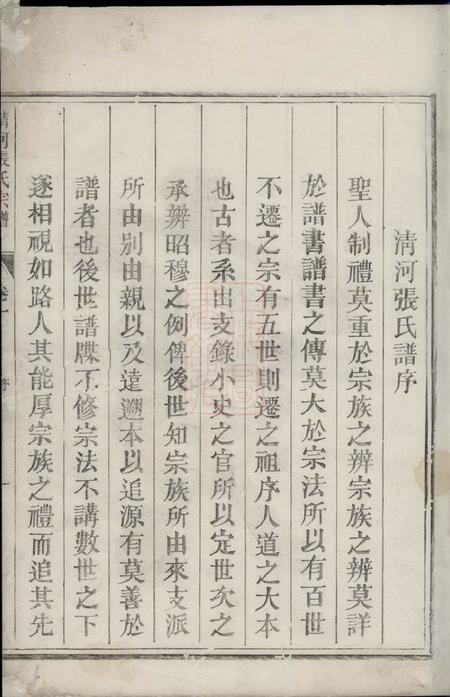 清河張氏譜序
聖人制禮莫重於宗族之辨宗族之辨莫詳
於譜書譜書之傳莫大於宗法所以有百世
不遷之宗有五世則遷之祖序人道之大本
也古者系出支錄小史之官所以定世次之
承辨昭穆之例俾後世知宗族所由來支派
所由別由親以及遠遡本以追源有莫善於
譜者也後世譜牒不修宗法不講數世之下
遂相視如路人其能厚宗族之禮而追其先
清河張氏宗譜
卷一
序
一